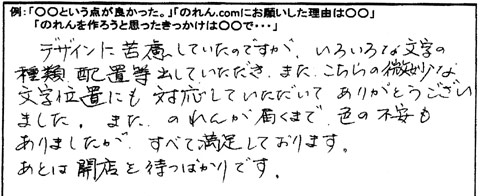 例:「〇〇という点が良かった。」「のれん.comにお願いした理由は〇〇」
「のれんを作ろうと思ったきっかけは〇〇で・・・」
デザインに苦慮していたのですが、いろいろな文字の
種類 配置等出していただき、また、こちらの微妙な
文字位置にも 対応していただいて ありがとうござい
ました。また、のれんが届くまで、色の不安も
ありましたが、すべて満足しております。
あとは 開店を待つばかりです。